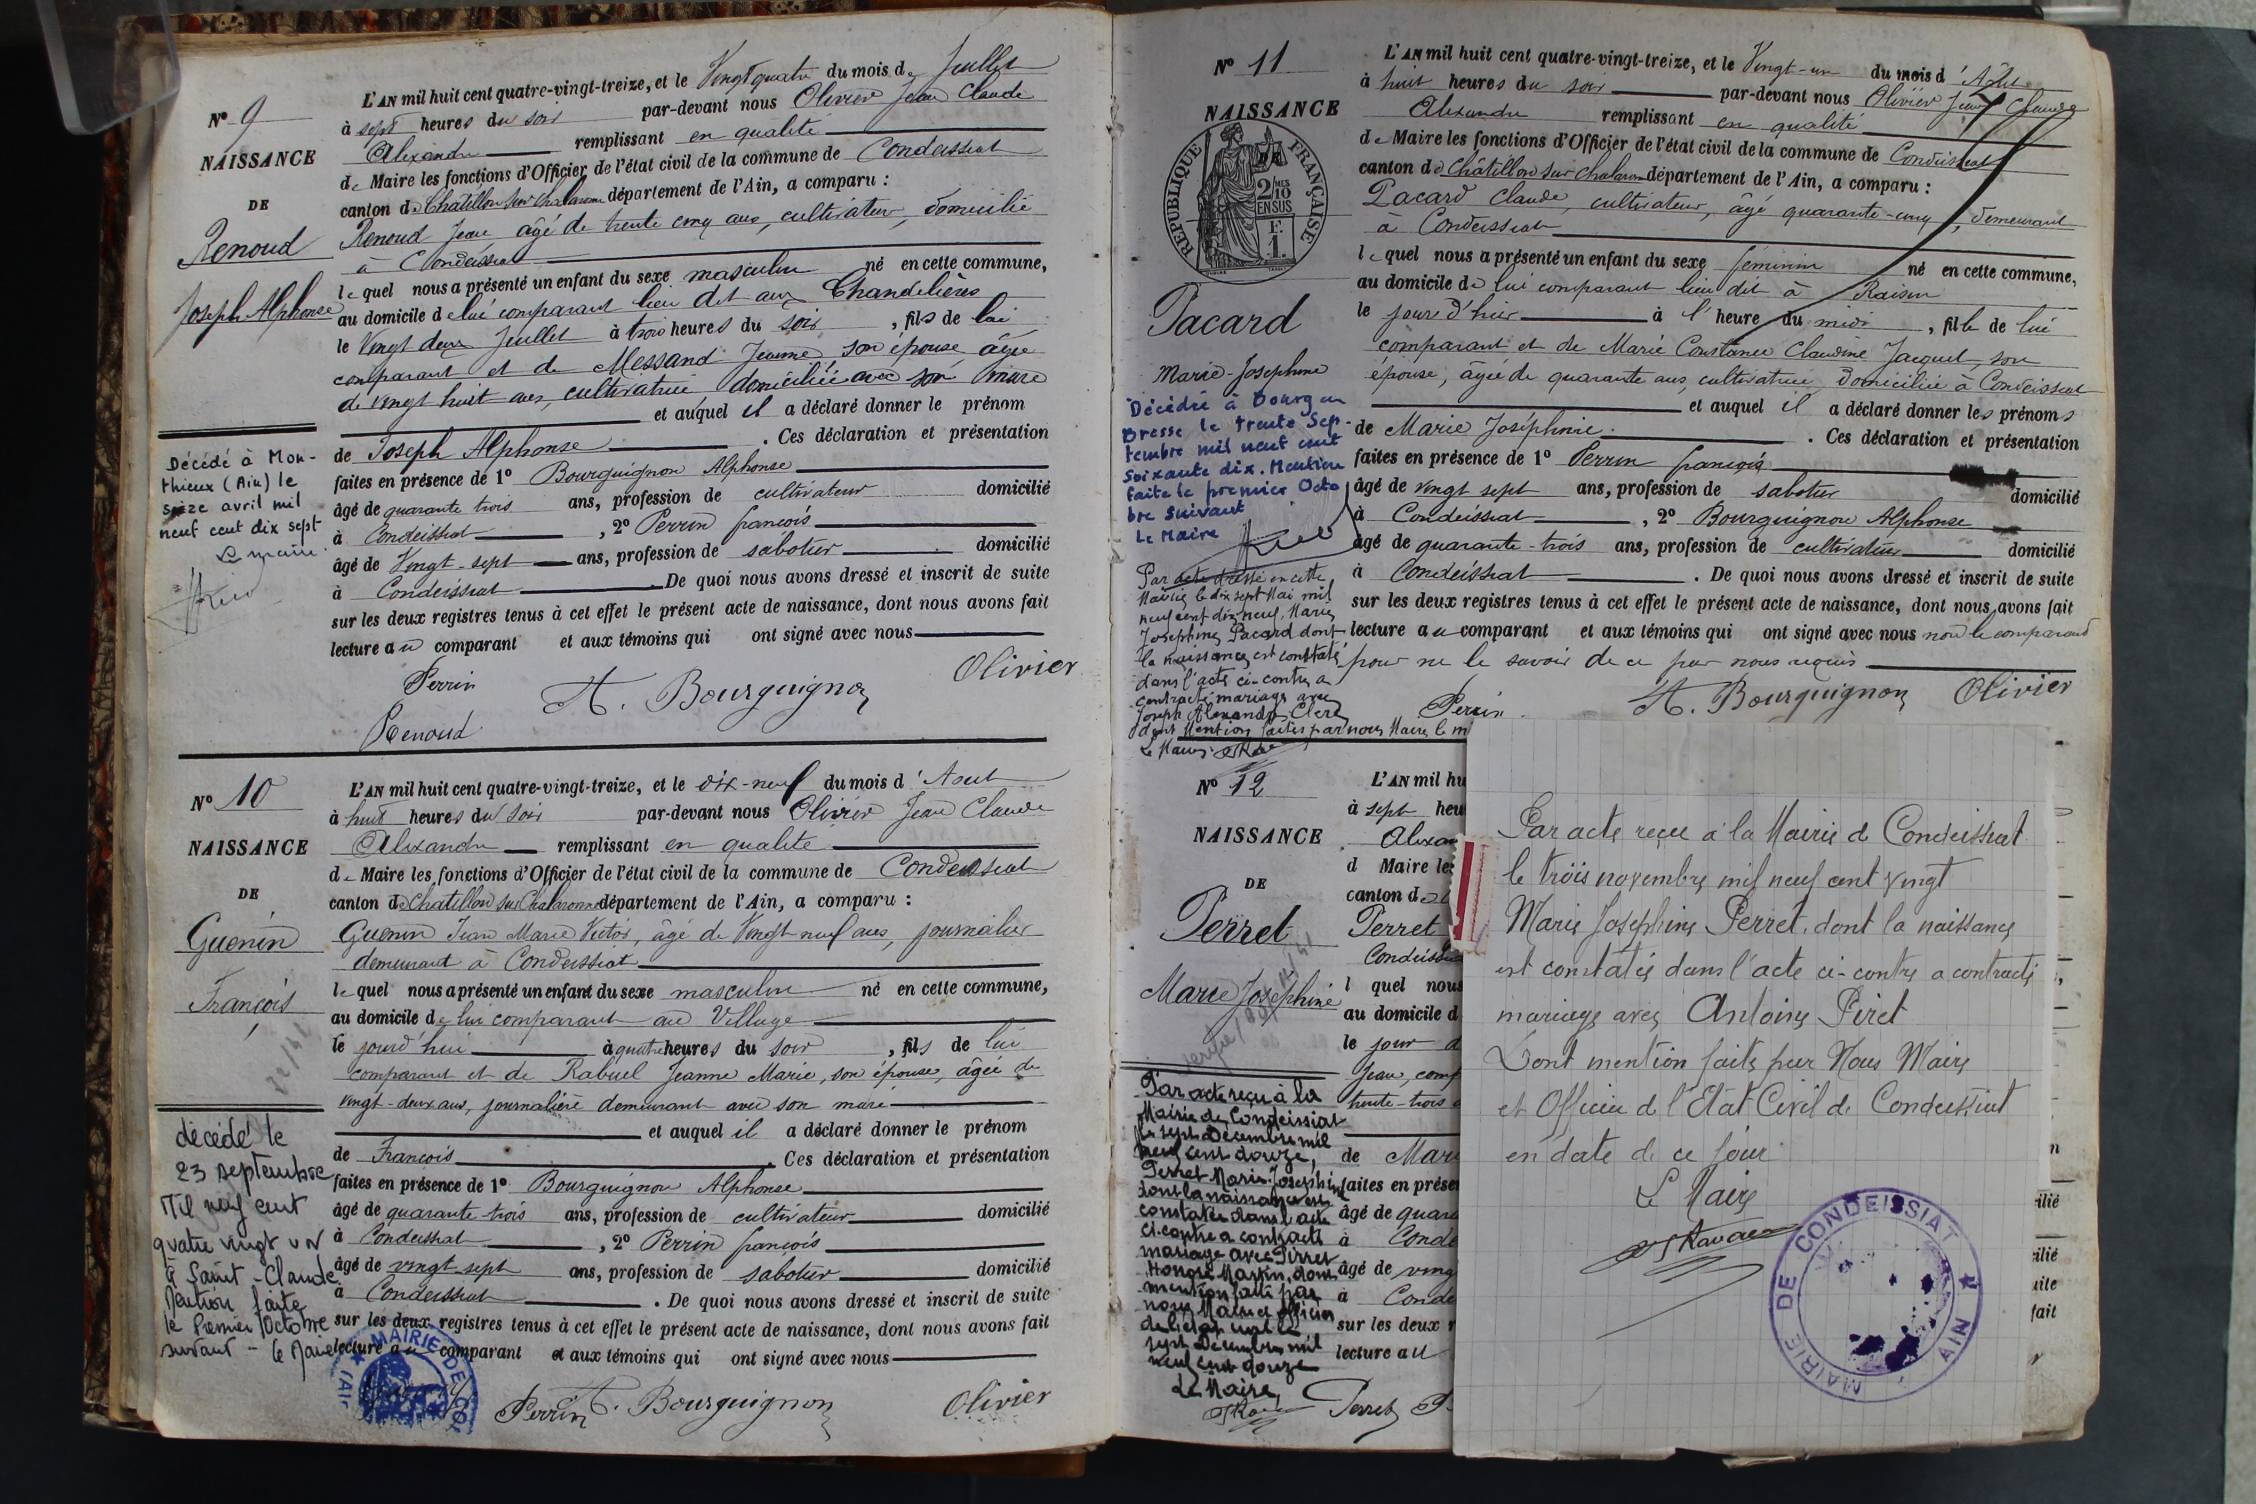 Nº 9
NAISSANCE
DE
Renoud
Joseph Alphonse
L'AN mil huit cent quatre-vingt-treize, et le Vingt quatre du mois de Juillet
à sept heures du soir par-devant nous Olivier Jean Claude
Alexandre remplissant en qualité
de Maire les fonctions d'Officier de l'état civil de la commune de Condeissiat
canton de Châtillon sur Chalaronne département de l'Ain, a comparu :
Renoud Jean âgé de trente cinq ans, cultivateur, domicilié
à Condeissiat
lequel nous a présenté un enfant du sexe masculin né en cette commune,
au domicile de lui comparant lieu dit aux Chandelières
le Vingt deux Juillet à trois heures du soir, fils de lui
comparant et de Messand Jeanne son épouse âgée
de vingt huit ans, cultivatrice domiciliée avec son mari
et auquel il a déclaré donner le prénom
de Joseph Alphonse. Ces déclaration et présentation
faites en présence de 1º Bourguignon Alphonse
âgé de quarante trois ans, profession de cultivateur domicilié
à Condeissiat, 2º Perrin françois
âgé de Vingt-sept ans, profession de sabotier domicilié
à Condeissiat. De quoi nous avons dressé et inscrit de suite
sur les deux registres tenus à cet effet le présent acte de naissance, dont nous avons fait
lecture au comparant et aux témoins qui ont signé avec nous
Perrin A. Bourguignon Olivier
Renoud
Décédé à Mon-
thieux (Ain) le
seize avril mil
neuf cent dix sept
Le maire
Nº 10
NAISSANCE
DE
Guenin
François
L'AN mil huit cent quatre-vingt-treize, et le dix-neuf du mois d'Aout
à huit heures du soir par-devant nous Olivier Jean Claude
Alexandre remplissant en qualité
de Maire les fonctions d'Officier de l'état civil de la commune de Condeissiat
canton de Chatillon sur Chalaronne département de l'Ain, a comparu :
Guenin Jean Marie Victor, âgé de Vingt neuf ans, journalier
demeurant à Condeissiat
lequel nous a présenté un enfant du sexe masculin né en cette commune,
au domicile de lui comparant au Village
le jourd'hui à quatre heures du soir, fils de lui
comparant et de Rabuel Jeanne Marie, son épouse, âgée de
vingt-deux ans, journalière demeurant avec son mari
et auquel il a déclaré donner le prénom
de François. Ces déclaration et présentation
faites en présence de 1º Bourguignon Alphonse
âgé de quarante trois ans, profession de cultivateur domicilié
à Condeissiat, 2º Perrin françois
âgé de vingt-sept ans, profession de sabotier domicilié
à Condeissiat. De quoi nous avons dressé et inscrit de suite
sur les deux registres tenus à cet effet le présent acte de naissance, dont nous avons fait
lecture au comparant et aux témoins qui ont signé avec nous
Perrin A. Bourguignon Olivier
décédé le
23 septembre
Mil neuf cent
quatre vingt un
à Saint-Claude
Mention faite
le Premier Octobre
suivant - le Maire
MAIRIE DE CO
Nº 11
NAISSANCE
DE
RÉPUBLIQUE FRANÇAISE
2/10 MES
EN SUS
F.
1.
Pacard
Marie-Josephine
L'AN mil huit cent quatre-vingt-treize, et le Vingt-un du mois d'Août
à huit heures du soir par-devant nous Olivier Jean Claude
Alexandre remplissant en qualité
de Maire les fonctions d'Officier de l'état civil de la commune de Condeissiat
canton de Châtillon sur Chalaronne département de l'Ain, a comparu :
Pacard Claude, cultivateur, âgé quarante-cinq, demeurant
à Condeissiat
lequel nous a présenté un enfant du sexe féminin né en cette commune,
au domicile de lui comparant lieu dit à Raisin
le jour d'hier à l'heure du midi, fille de lui
comparant et de Marie Constance Claudine Jacquet, son
épouse, âgée de quarante ans, cultivatrice, domiciliée à Condeissiat
et auquel il a déclaré donner les prénoms
de Marie Joséphine. Ces déclaration et présentation
faites en présence de 1º Perrin françois
âgé de vingt sept ans, profession de sabotier domicilié
à Condeissiat, 2º Bourguignon Alphonse
âgé de quarante-trois ans, profession de cultivateur domicilié
à Condeissiat. De quoi nous avons dressé et inscrit de suite
sur les deux registres tenus à cet effet le présent acte de naissance, dont nous avons fait
lecture au comparant et aux témoins qui ont signé avec nous non le comparant
pour ne le savoir de ce par nous requis
Perrin A. Bourguignon Olivier
Décédée à Bourg en
Bresse le trente Sep-
tembre mil neuf cent
soixante dix. Mention
faite le premier Octo
bre suivant
Le Maire
Par acte dressé en cette
Mairie le dix sept Mai mil
neuf cent dix neuf, Marie
Josephine Pacard dont
la naissance est constatée
dans l'acte ci-contre a
contracté mariage avec
Joseph Alexandre Clerc
dont Mention faite par nous Maire le m
Le Maire
Nº 12
NAISSANCE
DE
Perret
Marie Joséphine
L'AN mil hu
à sept heu
Alexan
d Maire les
canton de
Perret
Condeissia
l quel nous
au domicile d
le jour d
Jean, comp
trente-trois
de Mari
faites en prése
âgé de quara
à Conde
âgé de ving
à Conde
sur les deux r
lecture au
Perret
Par acte reçu à la
Mairie de Condeissiat
le sept Décembre mil
neuf cent douze,
Perret Marie-Joséphine
dont la naissance est
constatée dans l'acte
ci-contre a contracté
mariage avec Pirret
Honoré Martin, dont
mention faite par
nous Maire et officier
de l'état civil le
sept Décembre mil
neuf cent douze
Le Maire,
Par acte reçu à la Mairie de Condeissiat
le trois novembre mil neuf cent vingt
Marie Josephine Perret, dont la naissance
est constatée dans l'acte ci-contre a contracté
mariage avec Antoine Piret
Dont mention faite par Nous Maire
et Officier de l'Etat Civil de Condeissiat
en date de ce jour
Le Maire
MAIRIE DE CONDEISSIAT
AIN
n
ilié
cilié
uite
fait